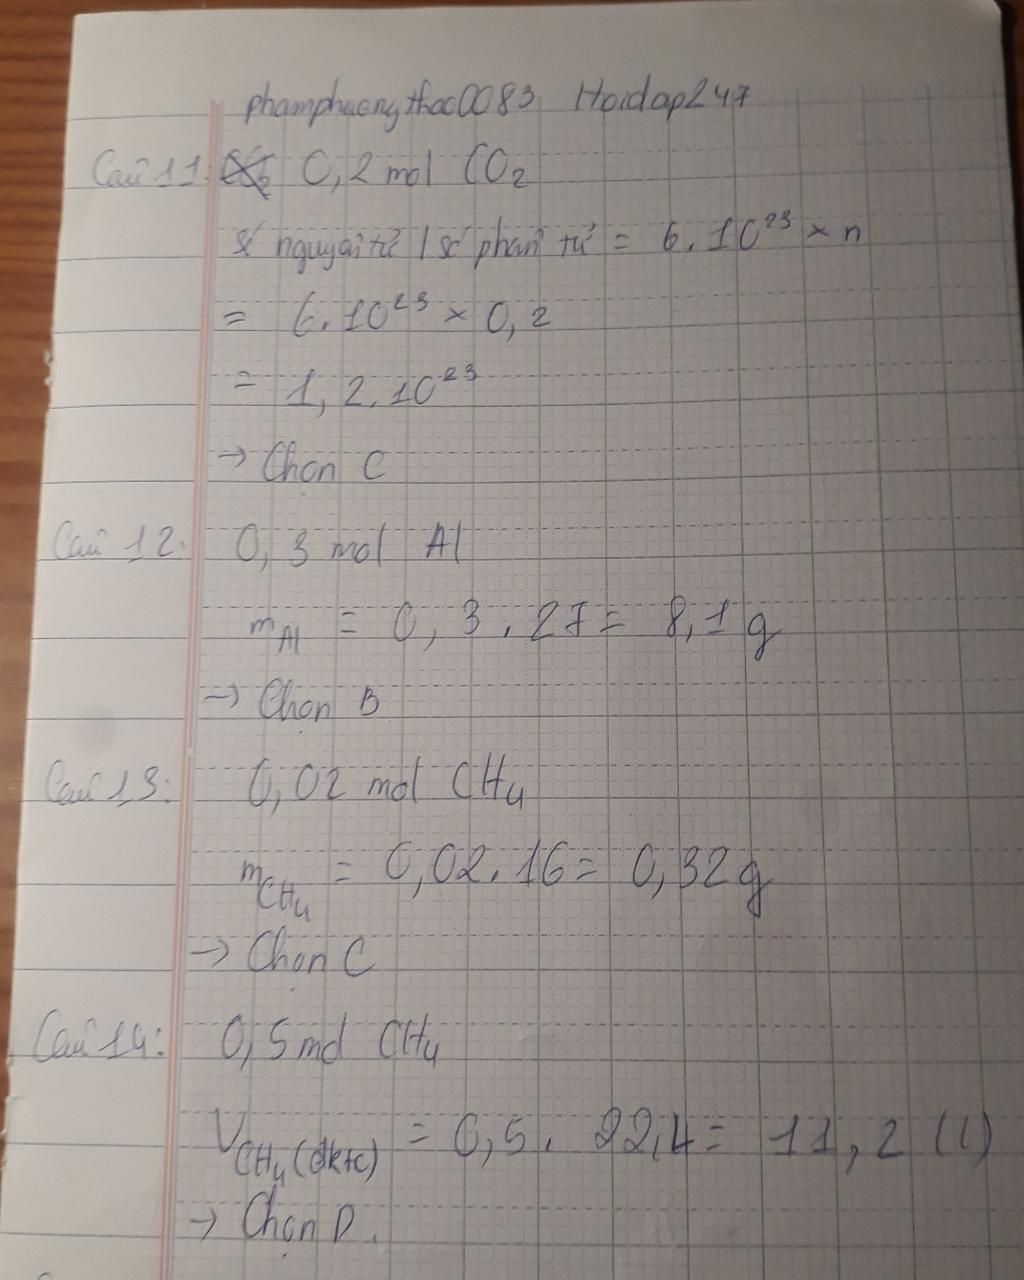 phamphuongthao0083 Hoidap247
Câu 11: 0,2 mol CO₂
Số nguyên tử / số phân tử = 6.10²³ × n
= 6.10²³ × 0,2
= 1,2.10²³
→ Chọn C
Câu 12: 0,3 mol Al
m Al = 0,3.27 = 8,1 g
→ Chọn B
Câu 13: 0,02 mol CH₄
m CH₄ = 0,02.16 = 0,32g
→ Chọn C
Câu 14: 0,5 mol CH₄
V CH₄ (đktc) = 0,5. 22,4 = 11,2 (l)
→ Chọn D.